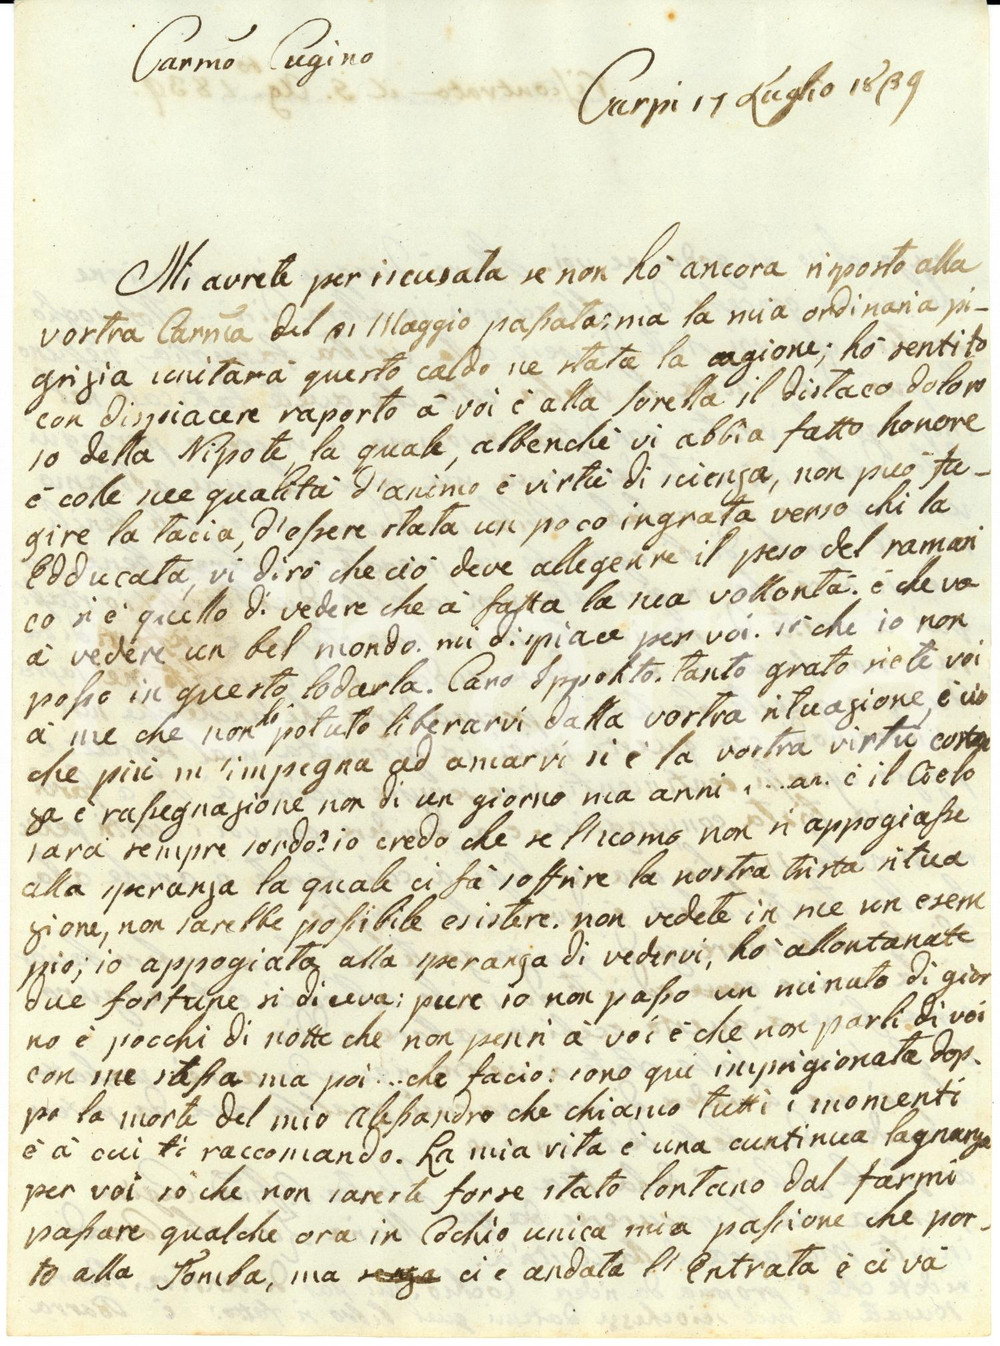 Carmo Cugino
Carpi 17 Luglio 1839
Mi avrete per iscusata se non hò ancora risposto alla
vostra Carma del 21 Maggio passata: ma la mia ordinaria pi-
grizia unitarà questo caldo ne stata la cagione; hò sentito
con dispiacere raporto à voi è alla sorella il distaco doloro
so della Nipote, la quale, albenchè vi abbia fatto honore
è colle sue qualità d'animo è virtù di scienza, non può fu-
gire la tacia, d'essere stata un poco ingrata verso chi la
Edducata, vi dirò che ciò deve allegerire il peso del ramari
co si è quello di vedere che à fatta la sua vollontà. è che va
à vedere un bel mondo. mi dispiace per voi. sì che io non
posso in questo lodarla. Caro Ippolito. tanto grato siete voi
à me che non hò potuto liberarvi dalla vostra situazione, è ciò
che più m'impegna ad amarvi si è la vostra virtù costan
za è rassegnazione non di un giorno ma anni, ... an. è il Cielo
sarà sempre sordo? io credo che se l'uomo non si appogiasse
alla speranza la quale ci fà soffrire la nostra trista situa
zione, non sarebbe possibile esistere. non vedete in me un esem
pio; io appogiata alla speranza di vedervi, hò allontanate
due fortune si diceva: pure io non passo un minuto di gior
no è pocchi di notte che non pensi à voi è che non parli di voi
con me stessa ma poi ... che facio: sono qui imprigionata dop-
po la morte del mio Alessandro che chiamo tutti i momenti
è à cui ti raccomando. La mia vita è una cuntinua lagnanza
per voi sò che non sareste forse stato lontano dal farmi
passare qualche ora in Cochio unica mia passione che por-
to alla Tomba, ma senza ci è andata l'Entrata è ci và